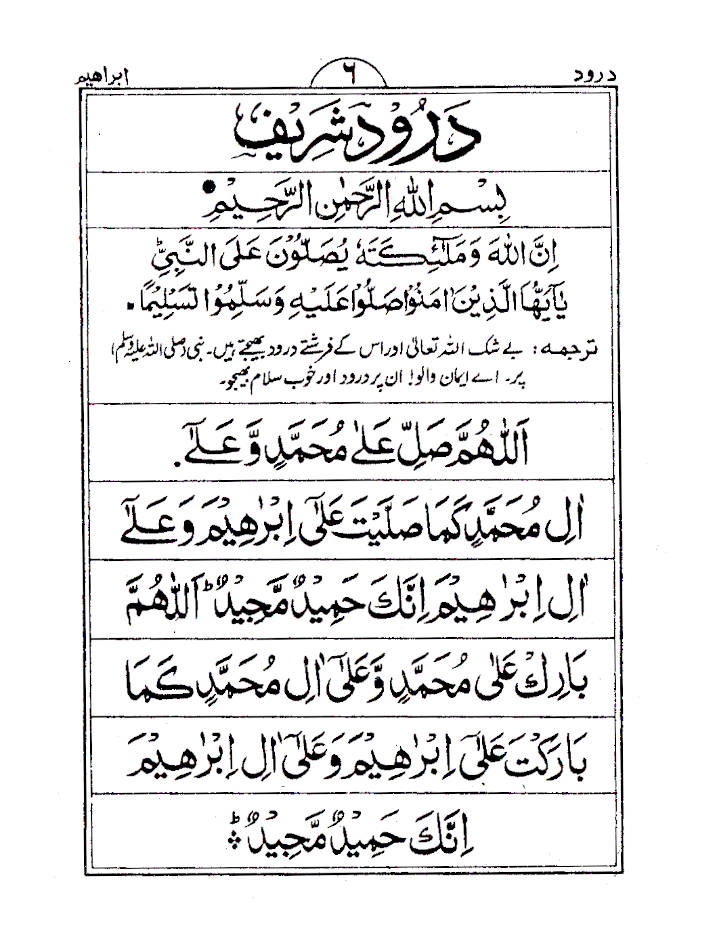 درود
۶
ابراهيم
دَرُوْد شَرِيْف
بِسْمِ اللهِ الرَّحْمٰنِ الرَّحِيْمِ
اِنَّ اللهَ وَمَلٰٓئِكَتَهٗ يُصَلُّوْنَ عَلَى النَّبِيِّ ؕ
يٰٓاَيُّهَا الَّذِيْنَ اٰمَنُوْا صَلُّوْا عَلَيْهِ وَسَلِّمُوْا تَسْلِيْمًا.
ترجمہ: بے شک اللہ تعالیٰ اور اس کے فرشتے درود بھیجتے ہیں۔ نبی (صلی اللہ علیہ وسلم)
پر۔ اے ایمان والو! ان پر درود اور خوب سلام بھیجو۔
اَللّٰهُمَّ صَلِّ عَلٰى مُحَمَّدٍ وَّعَلٰٓى.
اٰلِ مُحَمَّدٍ كَمَا صَلَّيْتَ عَلٰٓى اِبْرٰهِيْمَ وَعَلٰٓى
اٰلِ اِبْرٰهِيْمَ اِنَّكَ حَمِيْدٌ مَّجِيْدٌ ؕ اَللّٰهُمَّ
بَارِكْ عَلٰى مُحَمَّدٍ وَّعَلٰٓى اٰلِ مُحَمَّدٍ كَمَا
بَارَكْتَ عَلٰٓى اِبْرٰهِيْمَ وَعَلٰٓى اٰلِ اِبْرٰهِيْمَ
اِنَّكَ حَمِيْدٌ مَّجِيْدٌ ؕ